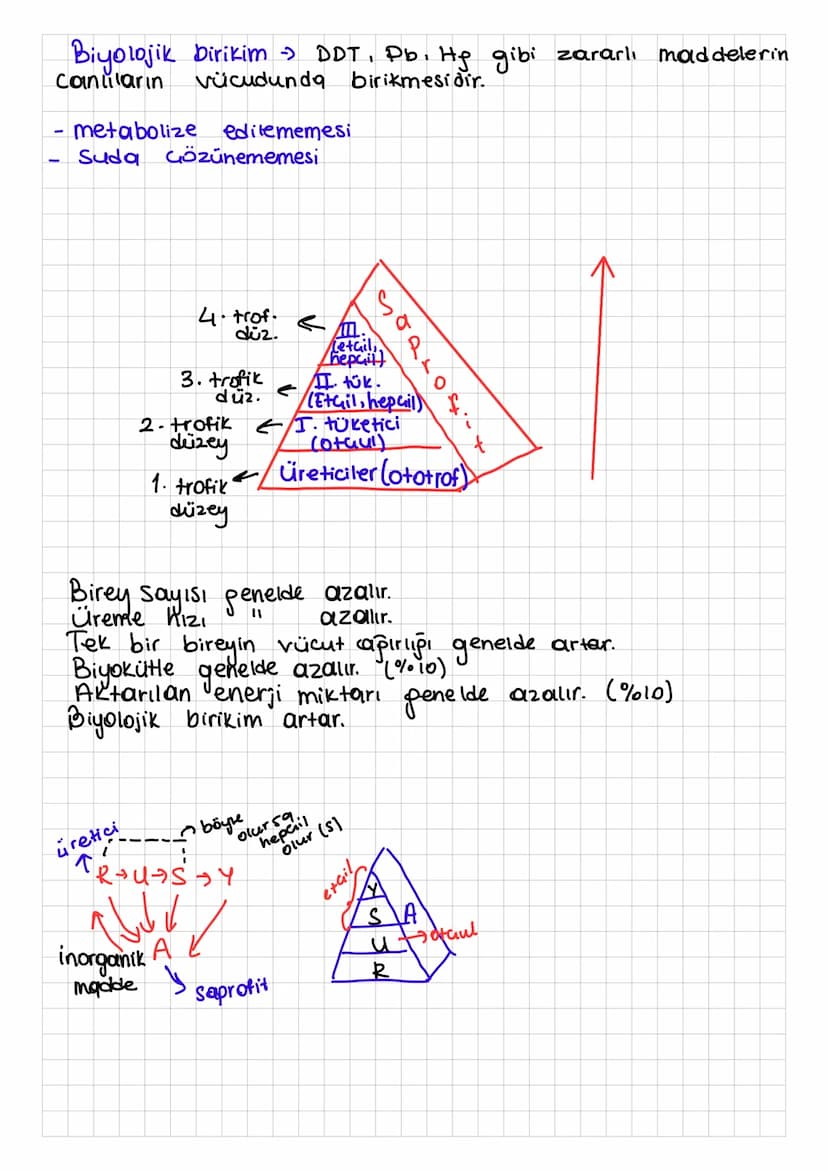 Biyolojik birikim → DDT, Pb, Hg gibi zararlı maddelerin
canlıların vücudunda birikmesidir.
- metabolize edilememesi
- Suda Çözünememesi
Saprofit
4. trof. düz. ← III. (etçil, hepçil)
3. trofik düz. ← II. tük. (Etçil, hepçil)
2. trofik düzey ← I. tüketici (otçul)
1. trofik düzey ← Üreticiler (ototrof)
Birey sayısı genelde azalır.
Üreme Hızı " azalır.
Tek bir bireyin vücut ağırlığı genelde artar.
Biyokütle genelde azalır. (%10)
Aktarılan enerji miktarı genelde azalır. (%10)
Biyolojik birikim artar.
üretici
böyle olursa hepçil olur (S)
R→U→S→Y
inorganik madde
A
saprofit
etçil
Y
S A
U → otçul
R